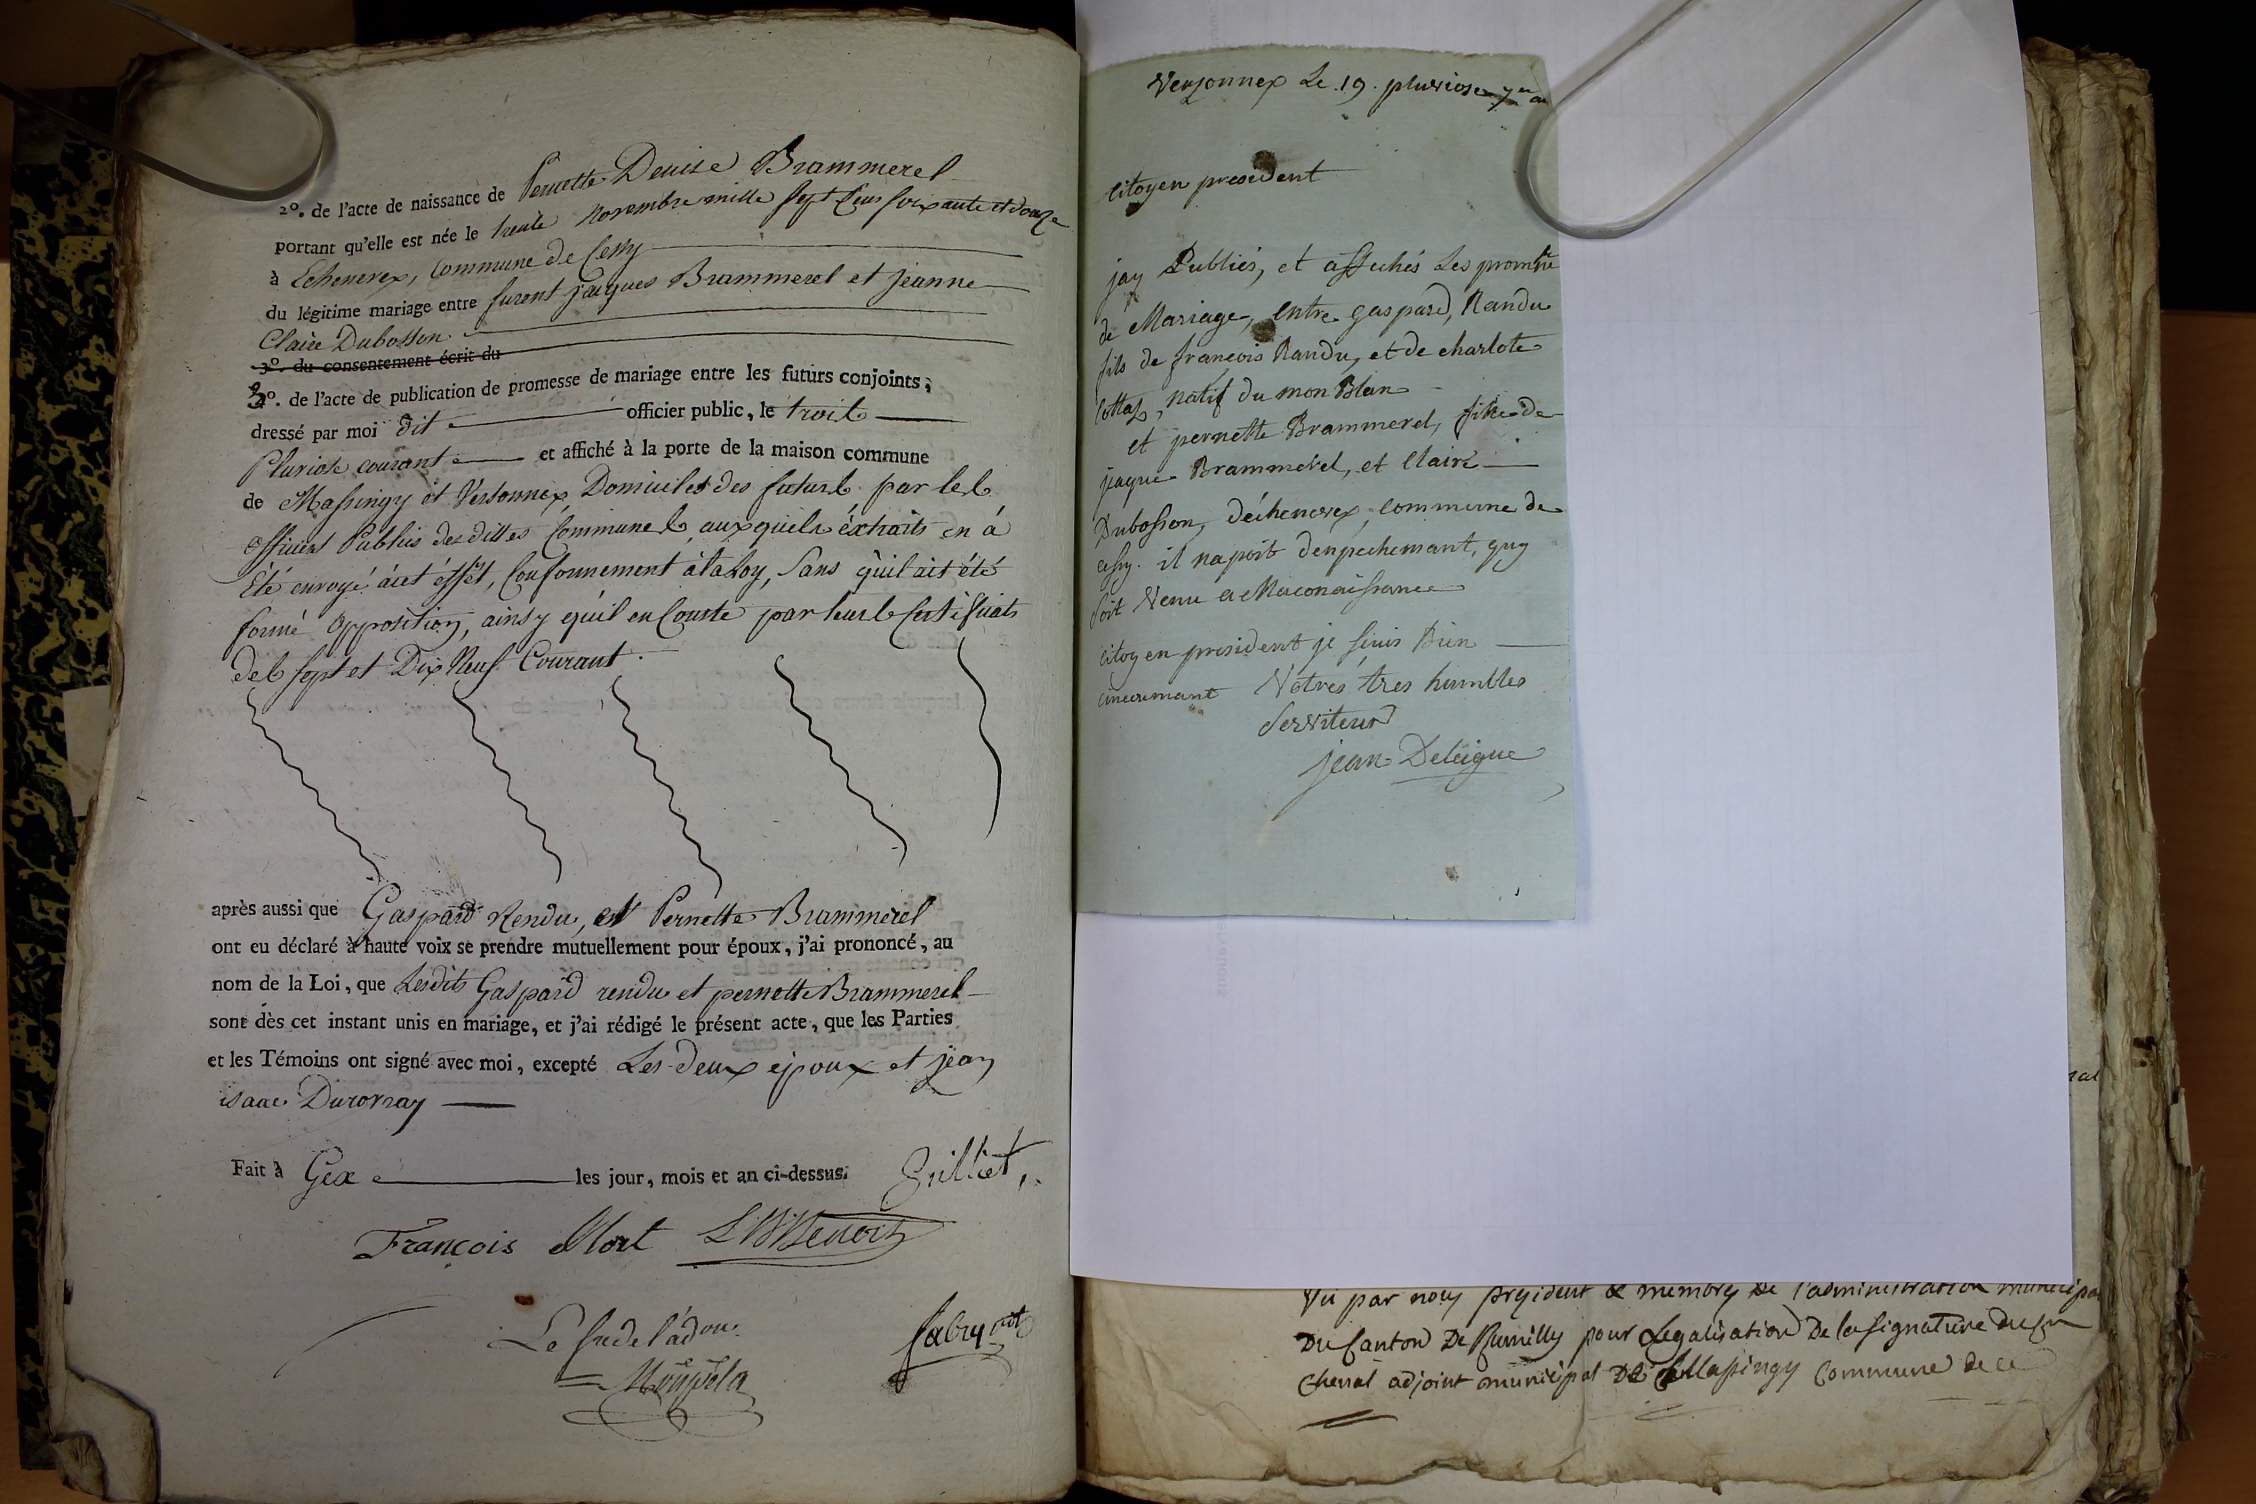 2º. de l'acte de naissance de Pernette Denise Brammerel
portant qu'elle est née le trente novembre mille Sept Cens Soixante et douze
à Echenevex, Commune de Cessy
du légitime mariage entre furent jacques Brammerel et jeanne
Claire Dubosson
3º. du consentement écrit du
3º. de l'acte de publication de promesse de mariage entre les futurs conjoints,
dressé par moi dit officier public, le trois
Pluviose courant et affiché à la porte de la maison commune
de Massingy et Versonnex, Domiciles des futurs par les
officiers Publics des dittes Communes, auxquels éxtraits en à
Eté envoyé àcet éffét, Conformement àlaLoy, Sans qu'il ait été
formé opposition, ainsy qu'il en Conste par leurs Certificats
des Sept et Dix Neuf Courant.
après aussi que Gaspard Rendu, et Pernette Brammerel
ont eu déclaré à haute voix se prendre mutuellement pour époux, j'ai prononcé, au
nom de la Loi, que Lesdits Gaspard rendu et pernette Brammerel
sont dès cet instant unis en mariage, et j'ai rédigé le présent acte, que les Parties
et les Témoins ont signé avec moi, excepté Les deux epoux et jean
isaac Durovray
Fait à Gex les jour, mois et an ci-dessus.
François Mort
Verzonnex Le .19. pluviose
Citoyen president
jay Publiés, et affichés Les
de Mariage, entre gaspard, Randu
fils de françois Randu, et de charlote
Cottaz, natif du mon Blan
et pernette Brammerel, fille de
jaque Brammerel, et Claire
Dubosson, déchenevex, commune de
cessy. il napoit denpechemant, quy
Soit Venu a Maconaissance
Citoyen president je suis Bien
cincermant Vôtres tres humbles
Serviteur
jean Deleigue
Vu par nous president & membres de l'administration municipa
Du Canton De Rumilly pour Legalisation De la signature du
adjoint municipal De Massingy Commune de ce